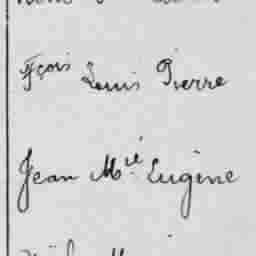 Fçois Louis Pierre
Jean Mie Eugène